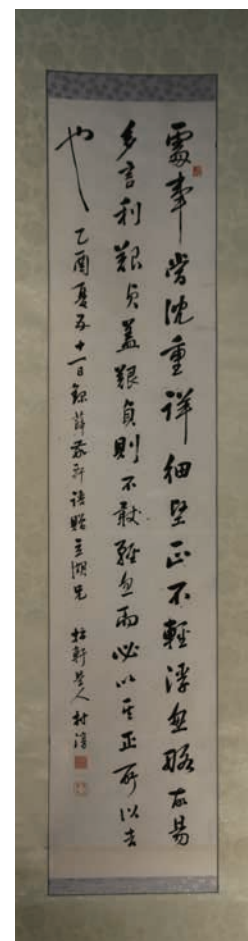 處事當沈重詳細堅正不輕浮忽略故易
多言利艱貞蓋艱貞則不敢輕忽而必以其正所以吉
也 乙酉夏五十一日録薛敬軒語贈立湖兄 拙軒人村淳